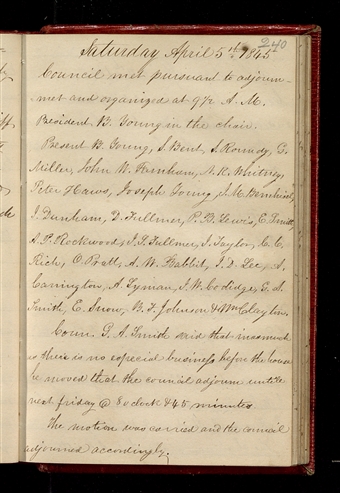 240
Saturday April 5th 1845
Council met pursuant to adjourn-
ment and organized at 9½ A. M.
President B. Young in the chair.
Present B. Young, S. Bent, S. Roundy, G.
Miller, John W. Farnham, N. K. Whitney,
Peter Haws, Joseph Young, J. M. Bernhisel,
J. Dunham, D. Fullmer, P. B. Lewis, E. Smith,
A. P. Rockwood, J. S. Fullmer, J. Taylor, C. C.
Rich, O. Pratt, A. W. Babbit, J. D. Lee, A.
Carrington, A. Lyman, J. W. Coolidge, G. A.
Smith, E. Snow, B. F. Johnson & Wm Clayton.
Coun. G. A. Smith said that inasmuch
as there is no especial business before the house
he moved that the council adjourn untill
next friday @ 8 o clock & 45 minutes
The motion was carried and the council
adjourned accordingly.